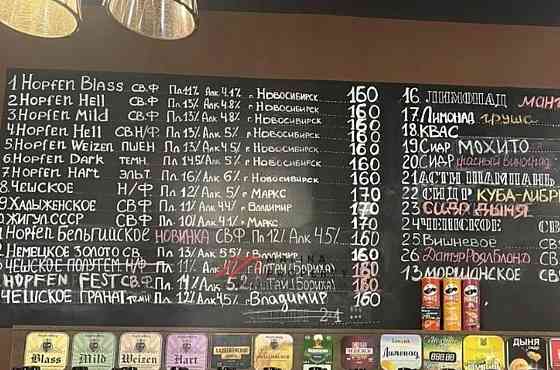 1 Hopfen Blass св.ф Пл.11% Алк 4.1% г. Новосибирск 160
2 Hopfen Hell св.ф Пл.13% Алк 4.8% г. Новосибирск 160
3. Hopfen Mild св.ф Пл.13% Алк 4.8% г. Новосибирск 160
4 Hopfen Hell св н/ф Пл.13% Алк 5% г. Новосибирск 160
5. Hopfen Weizen пшен Пл 13% Алк 4.5% г. Новосибирск 160
6. Hopfen Dark темн. Пл 14.5% Алк 5% г. Новосибирск 160
7. Hopfen Hart эльт. Пл.16% Алк 6% г. Новосибирск 160
8. Чешское Н/Ф Пл 12% Алк 5% г Маркс 170
9. Халыженское СВФ Пл 11% Алк 4.4% г Владимир 170
Жигул.СССР СВФ Пл 10% Алк 4.1% г. Маркс 170
Hopfen Бельгийское новинка СВФ Пл 12% Алк 4.5% 160
Немецкое золото св. Пл 13% Алк 5.5% г Владимир 160
Чешское полутем н/ф Алтай (Бориха) 160
Hopfen Fest св.ф Пл 14% Алк 5.2 Алтай (Бориха) 160
Чешское гранат темн Пл 12% Алк 4.5% г Владимир 160
16. Лимонад
17. Лимонад груша
18. Квас
19. Сидр Мохито
20. Сидр красный виноград
21 Асти шампань
22 Сидр Куба-либр
23 Сидр дыня
24 Чешское св
25 Вишневое св
26
13 Моршанское св
Blass
Mild
Weizen
Hart
Лимонад
Дыня